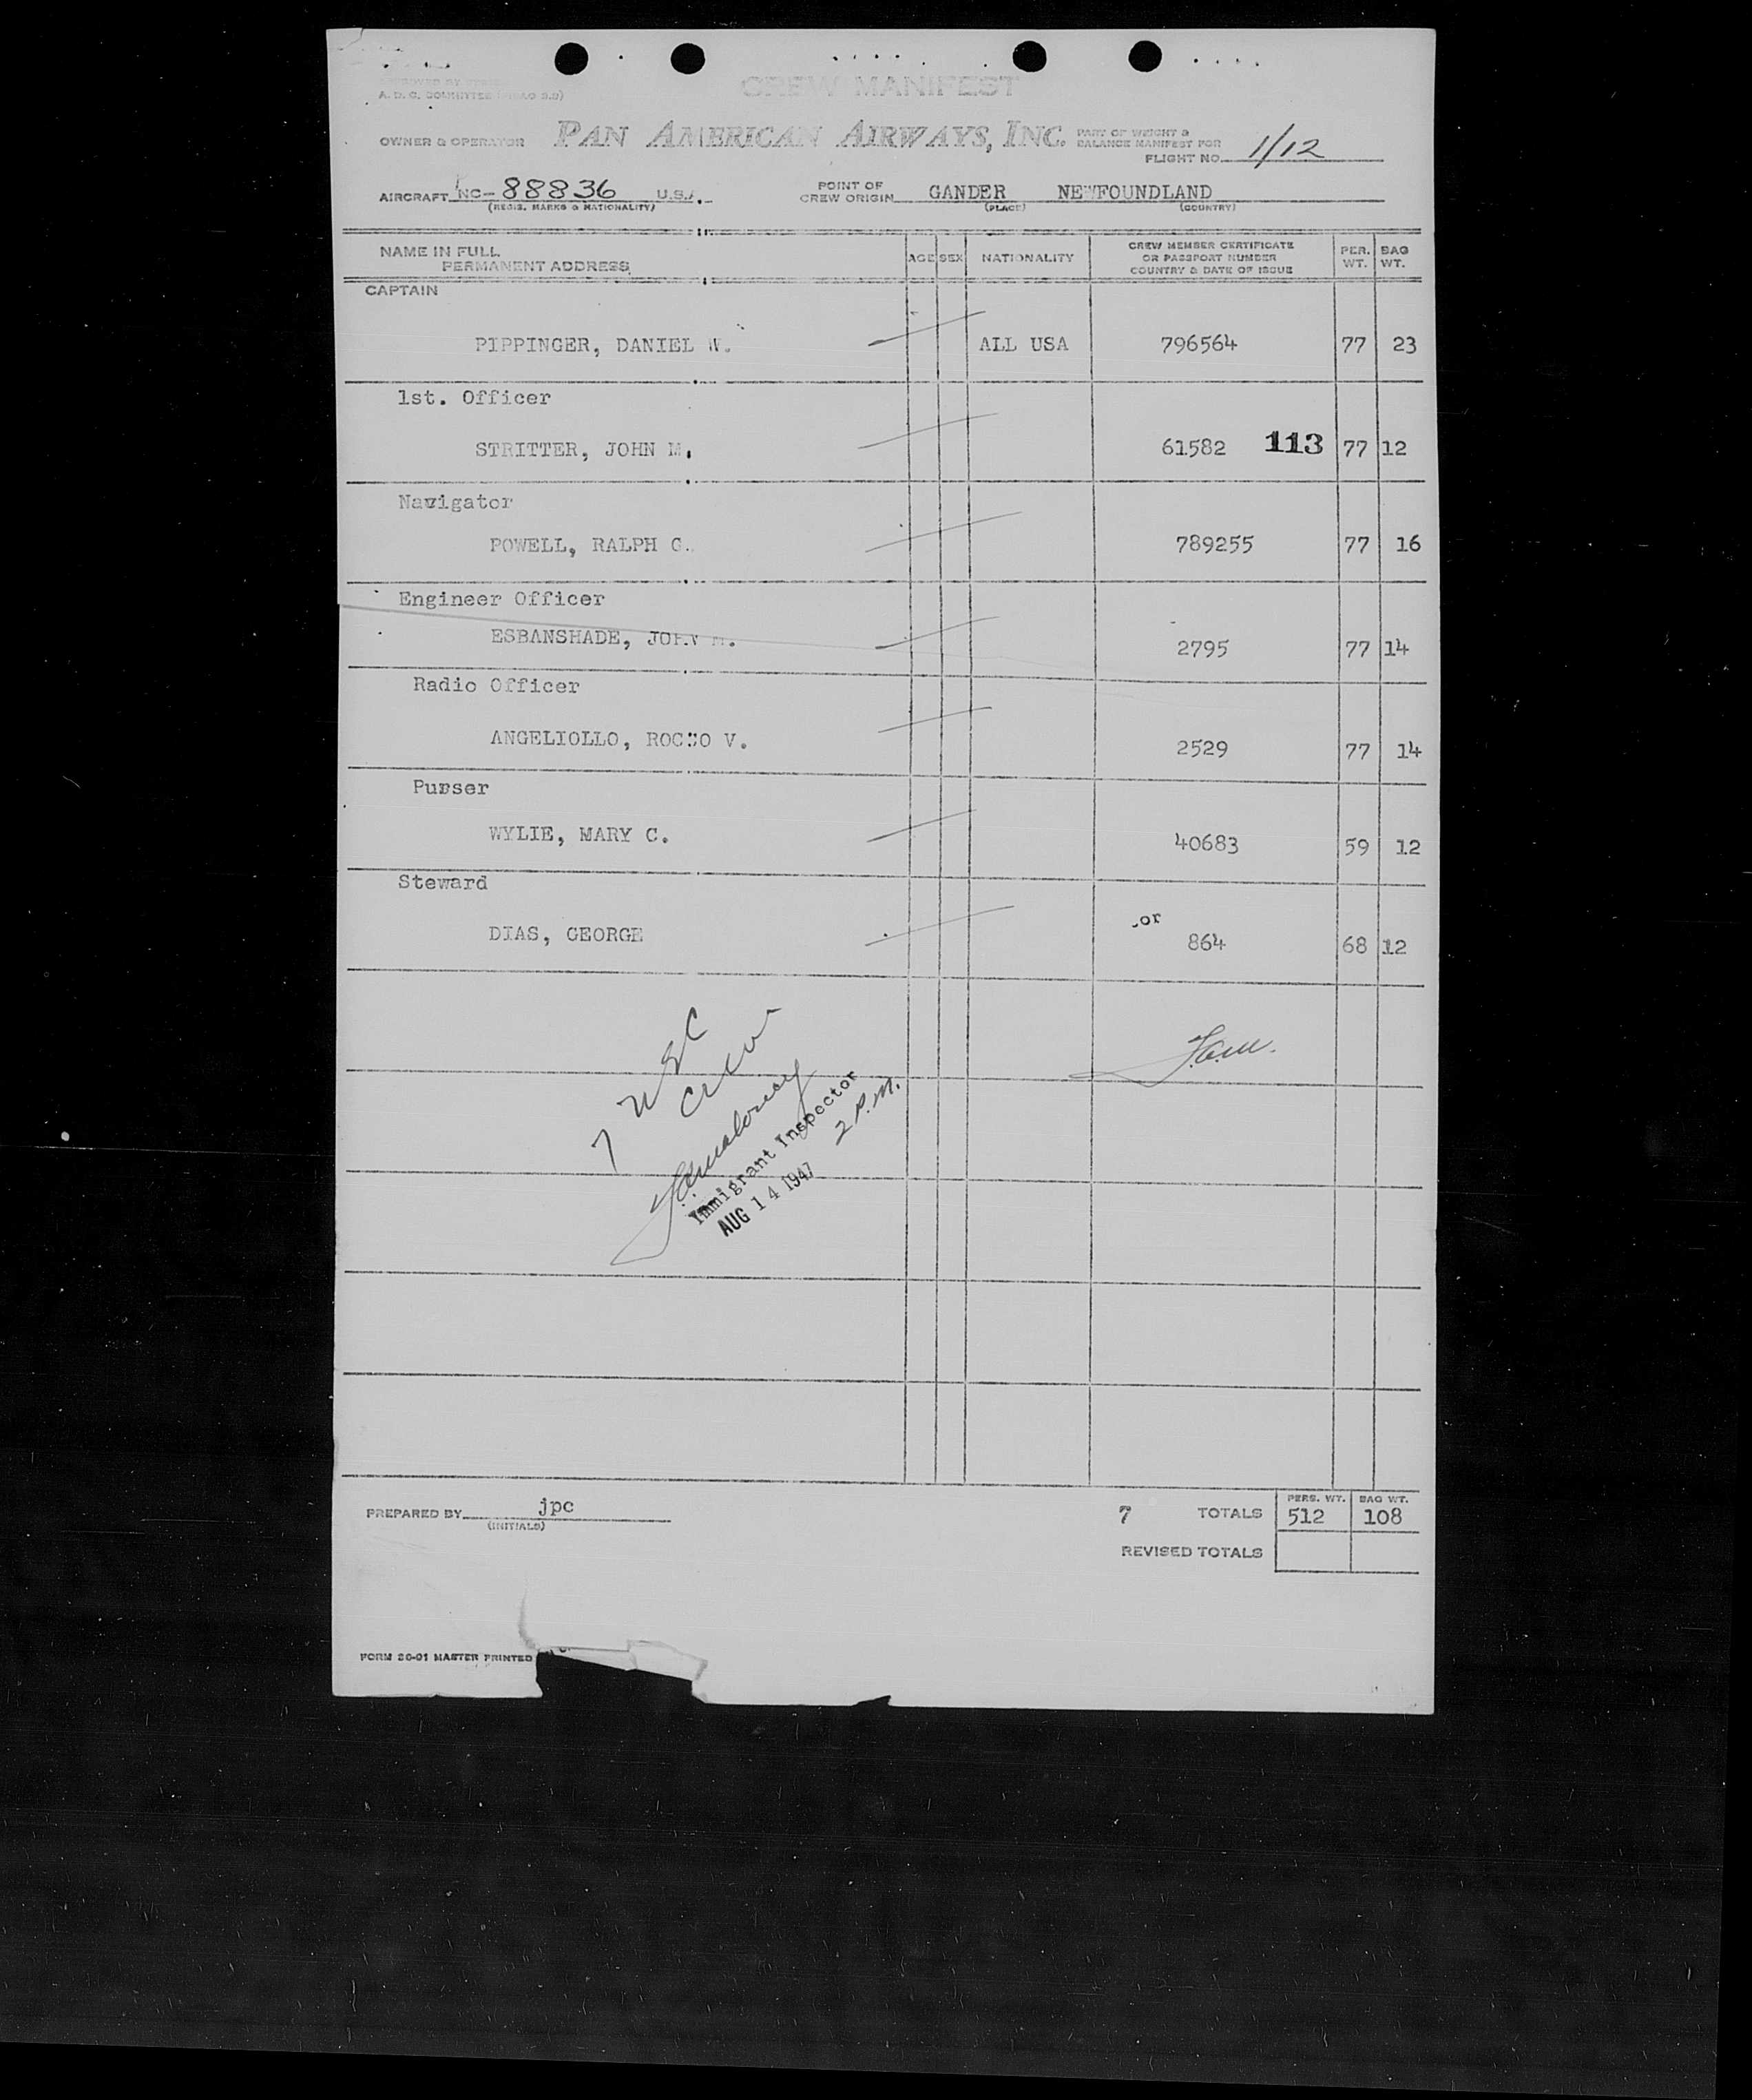 CREW MANIFEST
A. D. C. COMMITTEE
OWNER & OPERATOR PAN AMERICAN AIRWAYS, INC. PART OF WEIGHT &
BALANCE MANIFEST FOR
FLIGHT NO. 1/12
AIRCRAFT NC-88836 U.S.A. POINT OF
CREW ORIGIN GANDER NEWFOUNDLAND
(REGIS. MARKS & NATIONALITY) (PLACE) (COUNTRY)
NAME IN FULL
PERMANENT ADDRESS AGE SEX NATIONALITY CREW MEMBER CERTIFICATE
OR PASSPORT NUMBER
COUNTRY & DATE OF ISSUE PER. WT. BAG WT.
CAPTAIN
PIPPINGER, DANIEL W. ALL USA 796564 77 23
1st. Officer
STRITTER, JOHN M. 61582 113 77 12
Navigator
POWELL, RALPH G. 789255 77 16
Engineer Officer
ESBANSHADE, JOHN 2795 77 14
Radio Officer
ANGELIOLLO, ROCCO V. 2529 77 14
Purser
WYLIE, MARY C. 40683 59 12
Steward
or
DIAS, GEORGE 864 68 12
7 USC
Crew
Immigrant Inspector
2 P.M.
AUG 14 1947
PREPARED BY jpc
(INITIALS)
PERS. WT. BAG WT.
7 TOTALS 512 108
REVISED TOTALS
FORM 20-01 MASTER PRINTED